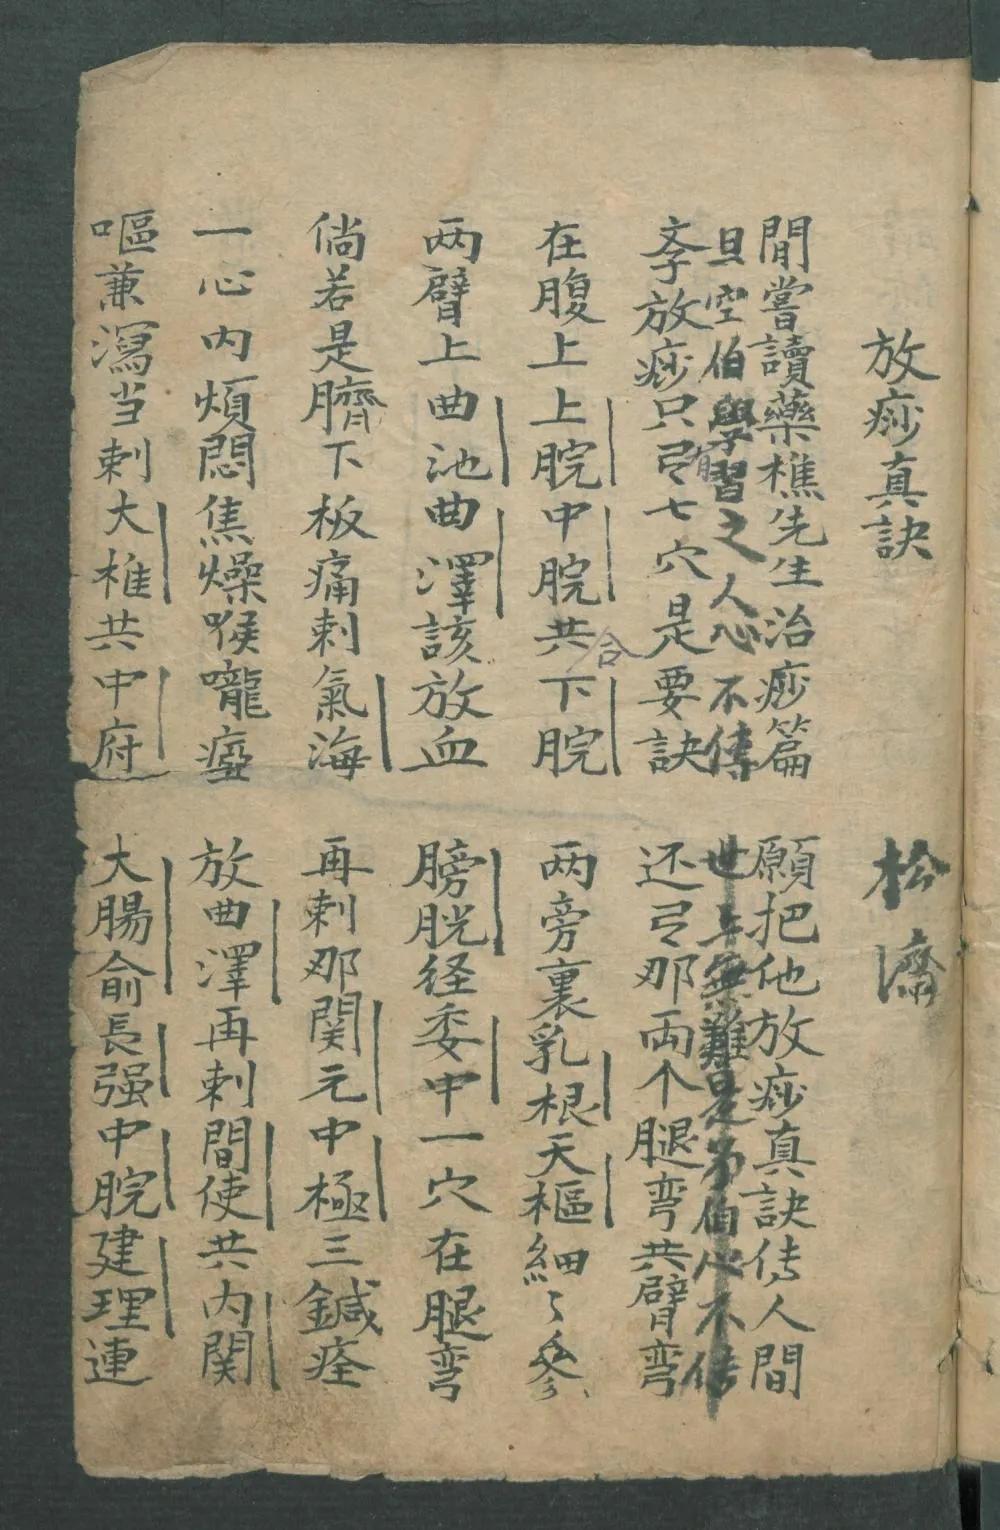 放痧真訣　松濤
閒嘗讀藥樵先生治痧篇　願把他放痧真訣传人間
旦空伯學習之人心不傳　世上無難是伯心不传
孝放痧只弓七穴是要訣　还弓那両个腿弯共臂弯
在腹上上脘中脘共下脘　两旁裏乳根天樞細々參
合
两臂上曲池曲澤該放血　膀胱径委中一穴在腿弯
倘若是臍下板痛刺氣海　再刺那関元中極三鍼痊
一心内煩悶焦燥喉嚨瘂　放曲澤再刺間使共内関
嘔兼瀉当刺大椎共中府　大腸俞長强中脘建理連